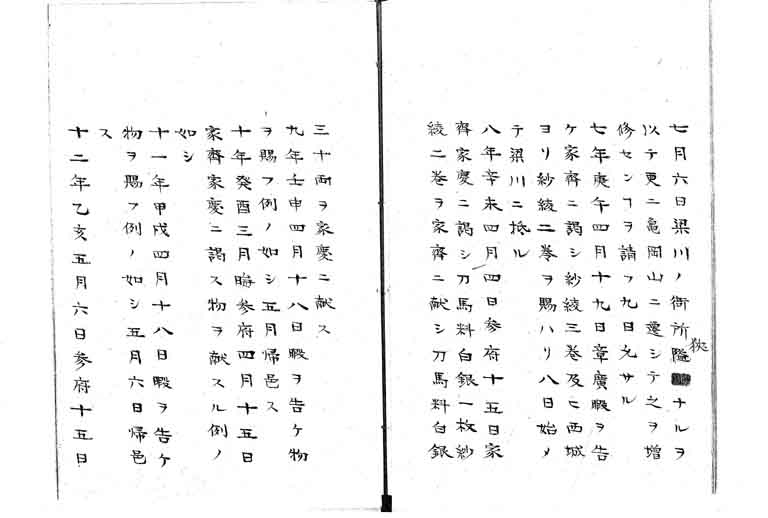 七月六日梁川ノ衙所隘狹ナルヲ
以テ更ニ亀岡山ニ遷シテ之ヲ増
修センヿヲ請フ九日允サル
七年庚午四月十九日章廣暇ヲ告
ケ家齊ニ謁シ紗綾三巻及ヒ西城
ヨリ紗綾二巻ヲ賜ハリ八日始メ
テ梁川ニ抵ル
八年辛未四月四日参府十五日家
齊家慶ニ謁シ刀馬料白銀一枚紗
綾二巻ヲ家齊ニ献シ刀馬料白銀
三十両ヲ家慶ニ献ス
九年壬申四月十八日暇ヲ告ケ物
ヲ賜フ例ノ如シ五月帰邑ス
十年癸酉三月晦参府四月十五日
家齊家慶ニ謁ス物ヲ献スル例ノ
如シ
十一年甲戌四月十八日暇ヲ告ケ
物ヲ賜フ例ノ如シ五月六日帰邑
ス
十二年乙亥五月六日参府十五日